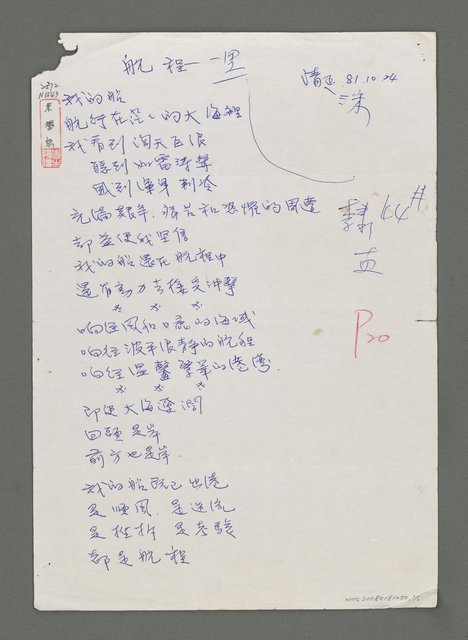 航程一里
81.10.24
我的船
航行在茫茫的大海裡
我看到滔天巨浪
聽到如雷濤聲
感到
充滿艱辛、痛苦和恐懼的周遭
却益使我堅信
我的船還在航程中
還有動力去接受沖擊
* * *
响往風和日麗的海域
响往波平浪靜的航程
响往溫馨寧靜的港灣.
* * *
即使大海遼濶
回頭是岸
前方也是岸.
我的船既已出港
是順風.是逆流
是挫折 是考驗
都是航程
P20